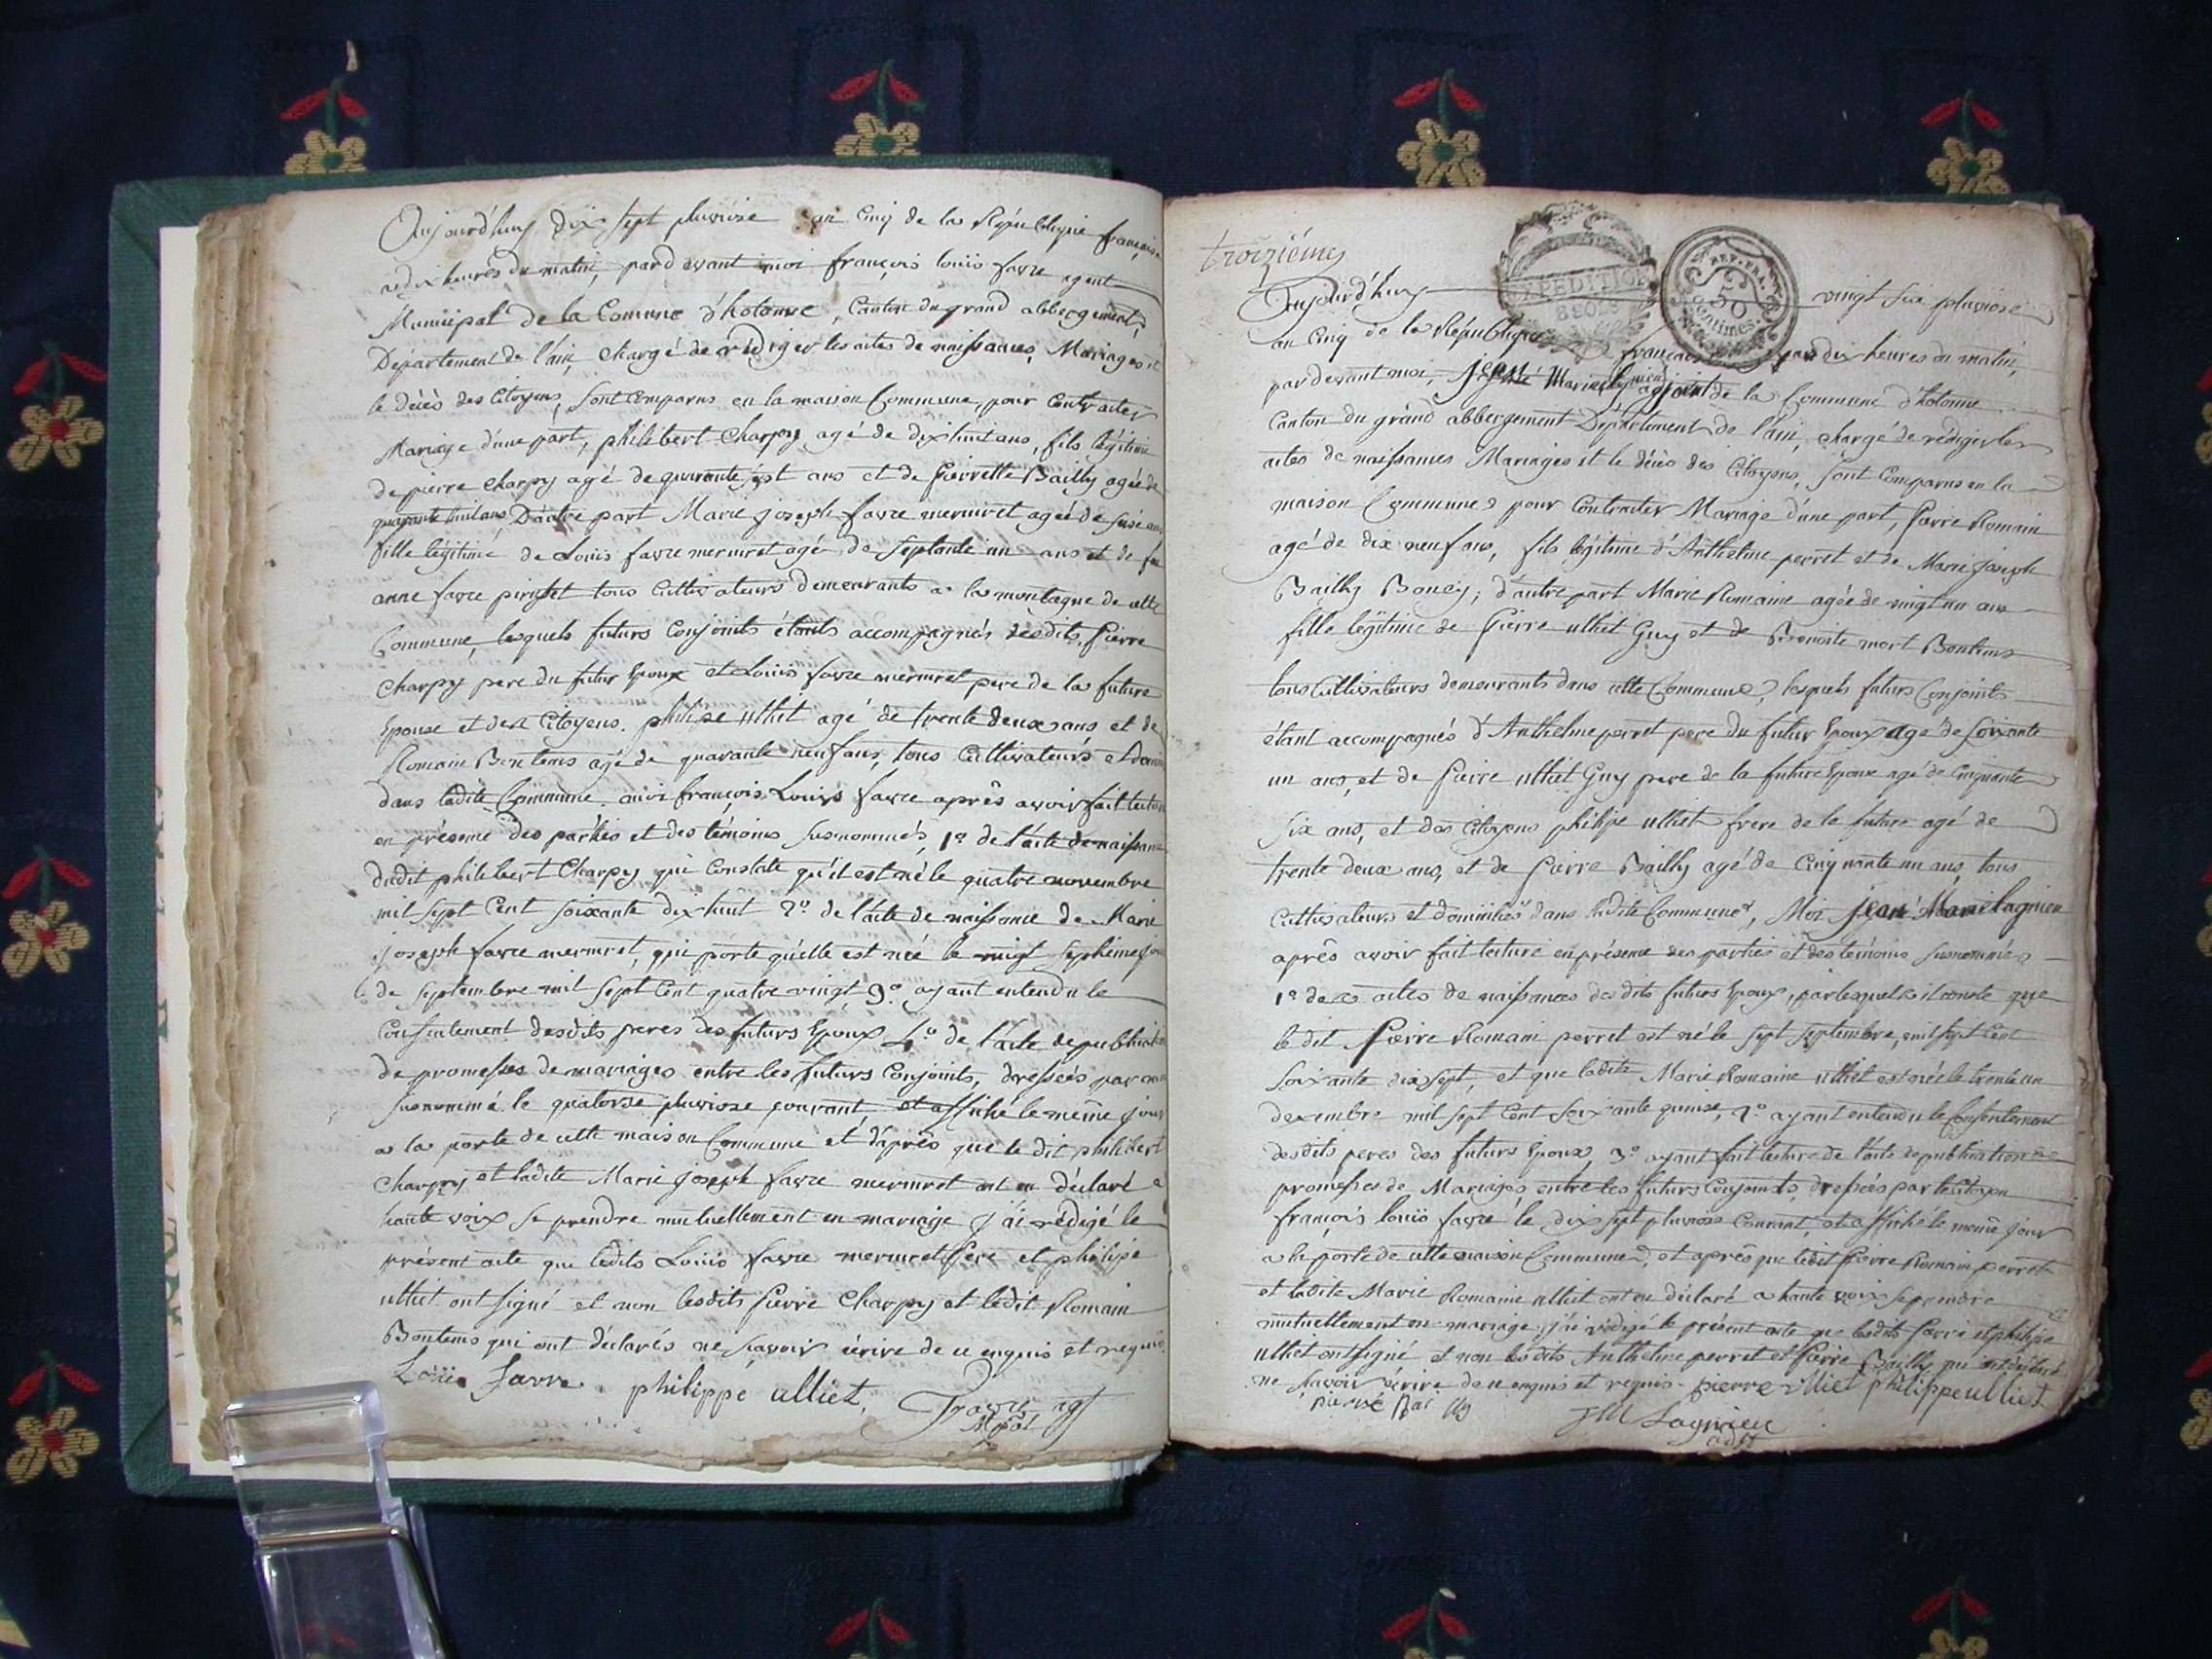 Aujourd'huy dix sept pluviose an Cinq de la République française
a dix heures du matin, pardevant moi françois louis favre agent
Municipal de la Comune d'hotonne, Canton du grand abbergement,
Département de l'ain, chargé de rédiger les actes de naissances, Mariages et
le décès des Citoyens, sont comparus en la maison Commune, pour Contracter
Mariage d'une part, philibert Charpy agé de dix huit ans, fils légitime
de pierre Charpy agé de quarante sept ans et de Pierrette Bailly agée de
quarante huit ans D'autre part Marie joseph favre mermret agée de seize ans
fille légitime de Louis favre mermret agé de septante un ans et de feu
anne favre tous Cultivateurs demeurants a la montagne de cette
Commune, lesquels futurs Conjoints étants accompagnés desdits Pierre
Charpy pere du futur Epoux et Louis favre mermret pere de la future
Epouse et des Citoyens philipe ulliet agé de trente deux ans et de
Romain Bontems agé de quarante neuf ans, tous Cultivateurs et
dans ladite Commune. moi françois Louis favre après avoir fait lecture
en présence des parties et des témoins susnommés, 1º de l'acte de naissance
dudit philibert Charpy qui Constate qu'il est né le quatre novembre
mil sept Cent soixante dix huit 2º de l'acte de naissance de Marie
joseph favre mermret, qui porte qu'elle est née le vingt septième jour
de septembre mil sept Cent quatre vingt 3º ayant entendu le
Consentement desdits peres des futurs Epoux 4º de l'acte de publication
de promesses de mariages entre les futurs Conjoints, dressées par moi
susnommé le quatorse pluviose courant et affiché le même jour
a la porte de cette maison Commune et d'après que le dit philibert
Charpy et ladite Marie joseph favre mermret ont eu déclaré a
haute voix se prendre mutuellement en mariage j'ai rédigé le
présent acte que lesdits Louis favre mermret pere et philipe
ulliet ont signé et non lesdits Pierre Charpy et ledit Romain
Bontems qui ont déclarés ne scavoir écrire de ce enquis et requis.
Louis favre. philippe ulliet. favre agt
Mpal
troizième
Aujourd'huy vingt six pluviose
EXPEDITION
REP. FRA.
50
centimes
an Cinq de la République française a dix heures du matin,
pardevant moi, Marie Lagnieu adjoint de la Commune d'hotonne
Canton du grand abbergement Département de l'ain, chargé de rédiger les
actes de naissances Mariages et le décès des Citoyens, sont comparus en la
maison Commune pour Contracter Mariage d'une part, Pierre Romain
agé de dix neuf ans, fils légitime d'Anthelme perret et de Marie joseph
Bailly Boney; d'autre part Marie Romaine agée de vingt un ans
fille légitime de Pierre ulliet Guy et de Benoite mort Bontems
tous Cultivateurs demeurants dans cette Commune, lesquels futurs Conjoints
étant accompagnés d'Anthelme perret pere du futur Epoux agé de soixante
un ans, et de Pierre ulliet Guy pere de la future Epouse agé de cinquante
six ans, et des Citoyens philipe ulliet frere de la future agé de
trente deux ans, et de Pierre Bailly agé de cinquante un ans, tous
Cultivateurs et domiciliés dans ladite Commune, Moi jean Marie lagnieu
après avoir fait lecture en présence des parties et des témoins susnommés
1º des actes de naissances desdits futurs Epoux, par lesquels il conste que
le dit Pierre Romain perret est né le sept septembre, mil sept Cent
soixante dix sept, et que ladite Marie Romaine ulliet est née le trente un
décembre mil sept cent soixante quinse, 2º ayant entendu le Consentement
desdits peres des futurs Epoux 3º ayant fait lecture de l'acte de publication de
promesses de Mariages entre les futurs Conjoints, dressées par le Citoyen
françois louis favre le dix sept pluviose Courant, et affiché le même jour
a la porte de cette maison Commune, et après que ledit Pierre Romain perret
et ladite Marie Romaine ulliet ont eu déclaré a haute voix se prendre
mutuellement en mariage j'ai rédigé le présent acte que lesdits Pierre et philipe
ulliet ont signé et non lesdits Anthelme perret et Pierre Bailly qui ont déclaré
ne scavoir écrire de ce enquis et requis. pierre ulliet philippe ulliet
pierre
JM Lagnieu
adjt